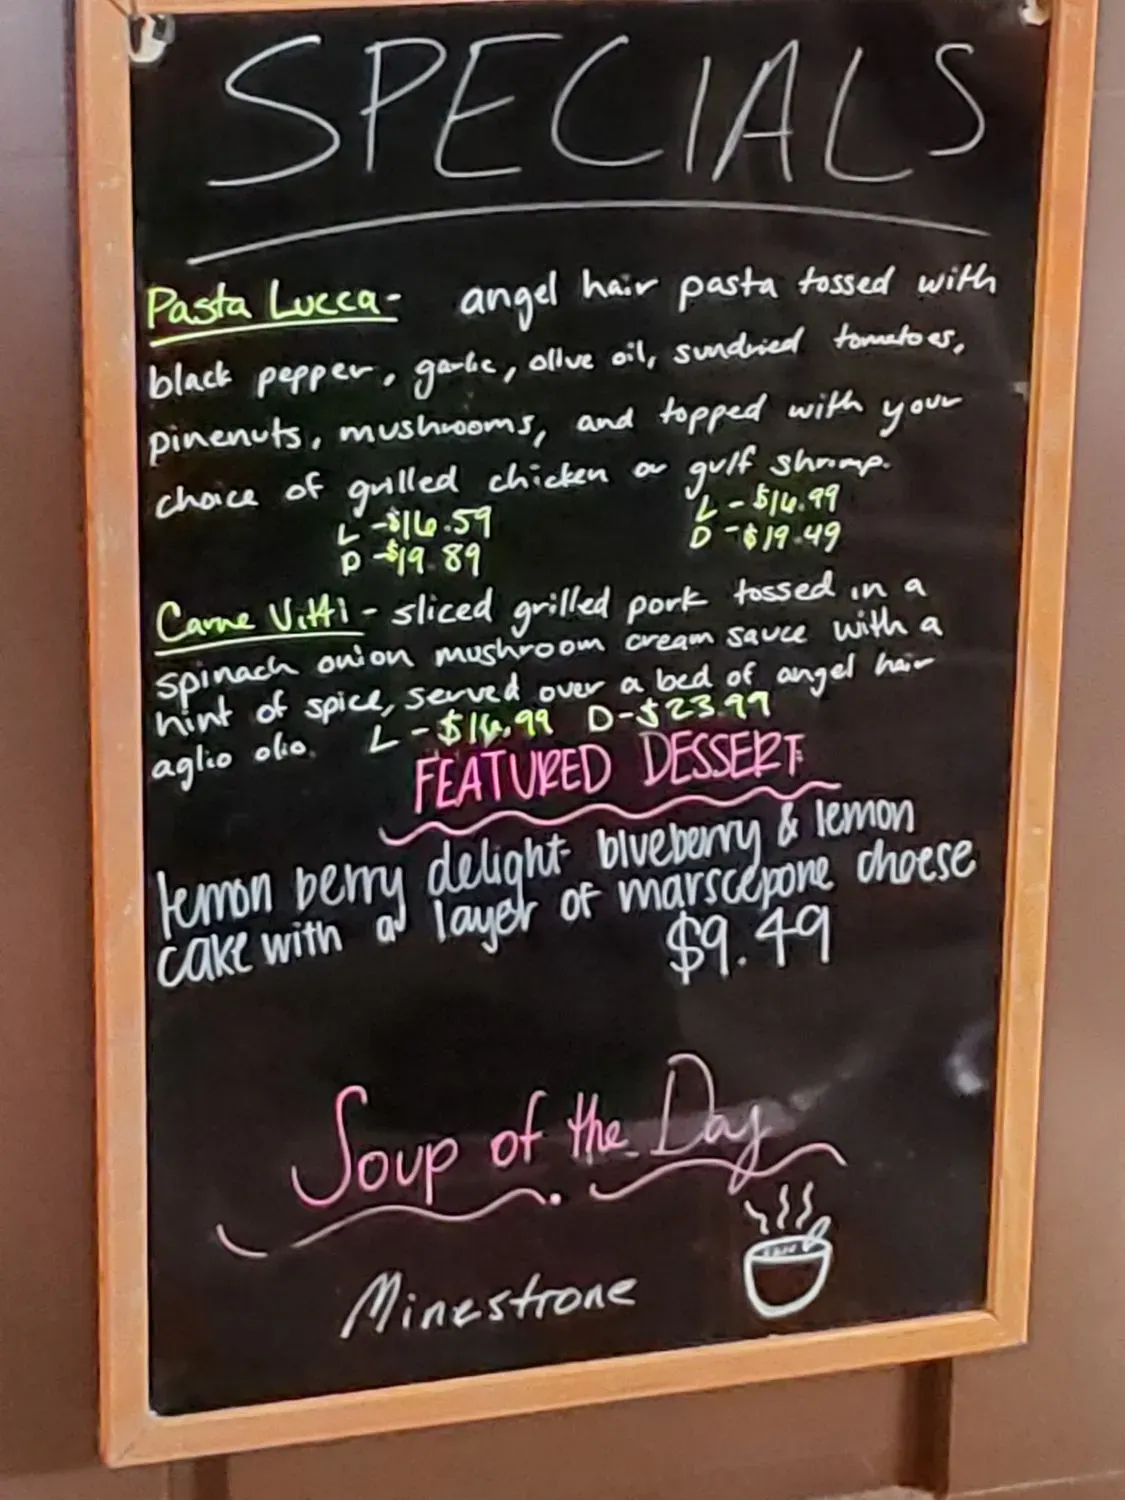 SPECIALS
Pasta Lucca- angel hair pasta tossed with
black pepper, garlic, olive oil, sundried tomatoes,
pinenuts, mushrooms, and topped with your
choice of grilled chicken or gulf shrimp.
L -$16.59 L -$16.99
D -$19.89 D -$19.49
Carne Vitti - sliced grilled pork tossed in a
spinach onion mushroom cream sauce with a
hint of spice, served over a bed of angel hair
aglio olio. L -$16.99 D-$23.99
FEATURED DESSERT
lemon berry delight- blueberry & lemon
cake with a layer of marscepone cheese
$9.49
Soup of the Day
Minestrone